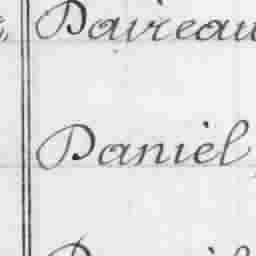 Daireau
Daniel